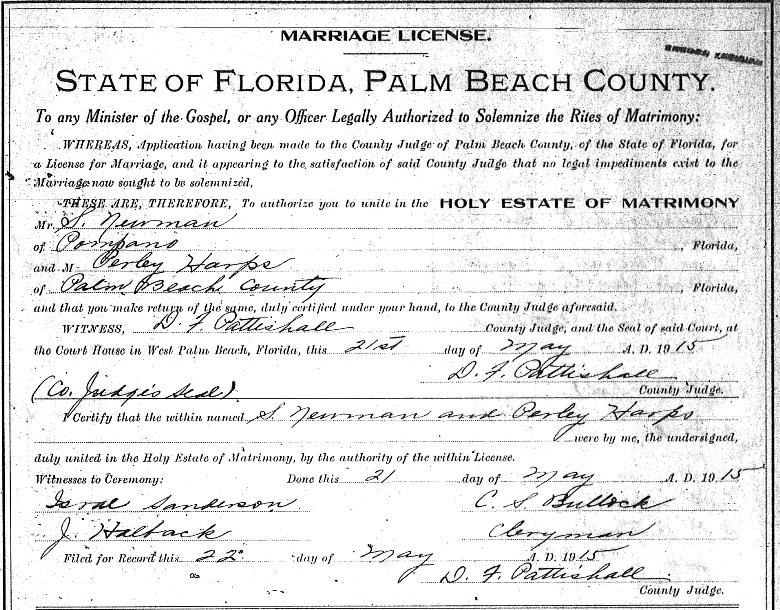 MARRIAGE LICENSE.
STATE OF FLORIDA, PALM BEACH COUNTY.
To any Minister of the Gospel, or any Officer Legally Authorized to Solemnize the Rites of Matrimony:
WHEREAS, Application having been made to the County Judge of Palm Beach County, of the State of Florida, for
a License for Marriage, and it appearing to the satisfaction of said County Judge that no legal impediments exist to the
Marriage now sought to be solemnized,
THESE ARE, THEREFORE, To authorize you to unite in the HOLY ESTATE OF MATRIMONY
Mr. S. Newman
of Pompano, Florida,
and M Perley Harps
of Palm Beach County, Florida,
and that you make return of the same, duly certified under your hand, to the County Judge aforesaid.
WITNESS, D. F. Pattishall County Judge, and the Seal of said Court, at
the Court House in West Palm Beach, Florida, this 21st day of May A. D. 1915
D. F. Pattishall
(Co. Judge's Seal) County Judge.
I Certify that the within named S. Newman and Perley Harps
were by me, the undersigned,
duly united in the Holy Estate of Matrimony, by the authority of the within License.
Witnesses to Ceremony: Done this 21 day of May A. D. 1915
Isral Sanderson C. S. Bullock
J. Halback Cleryman
Filed for Record this 22 day of May A. D. 1915
D. F. Pattishall
County Judge.